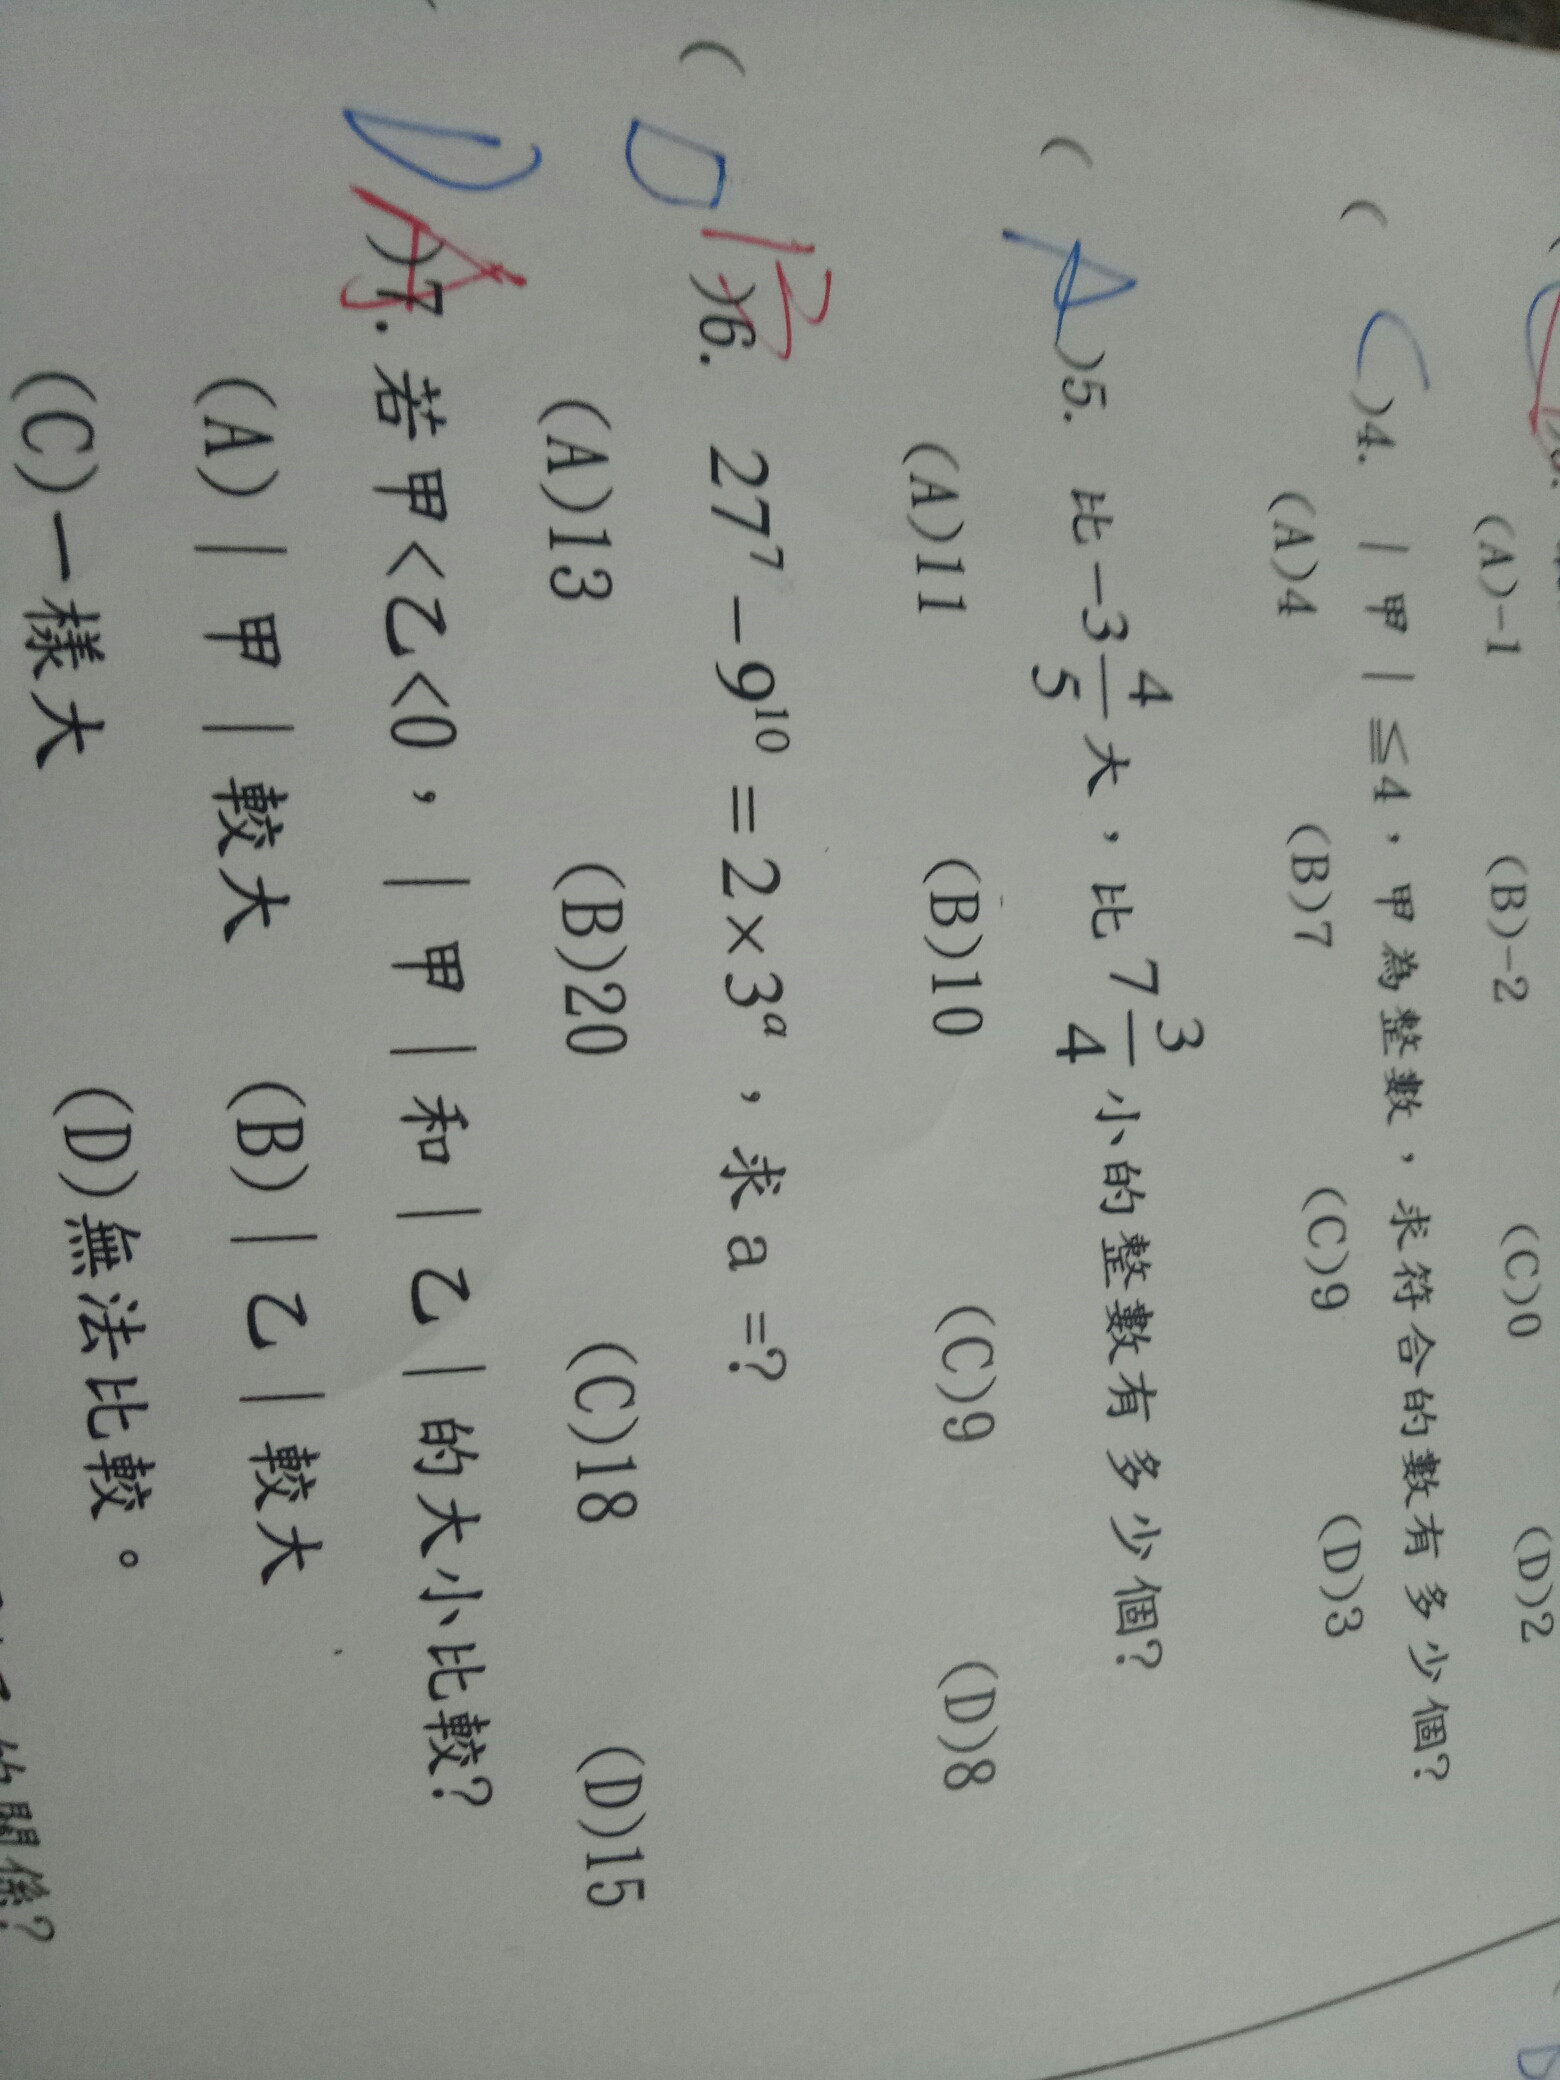 (A)-1 (B)-2 (C)0 (D)2
( C )4. |甲|≦4，甲為整數，求符合的數有多少個？
(A)4 (B)7 (C)9 (D)3
( A )5. 比-3 4/5 大，比 7 3/4 小的整數有多少個？
(A)11 (B)10 (C)9 (D)8
( D B )6. 27⁷－9¹⁰＝2×3ᵃ，求a=？
(A)13 (B)20 (C)18 (D)15
D A )7. 若甲<乙<0，|甲|和|乙|的大小比較？
(A)|甲|較大 (B)|乙|較大
(C)一樣大 (D)無法比較。
的關係？